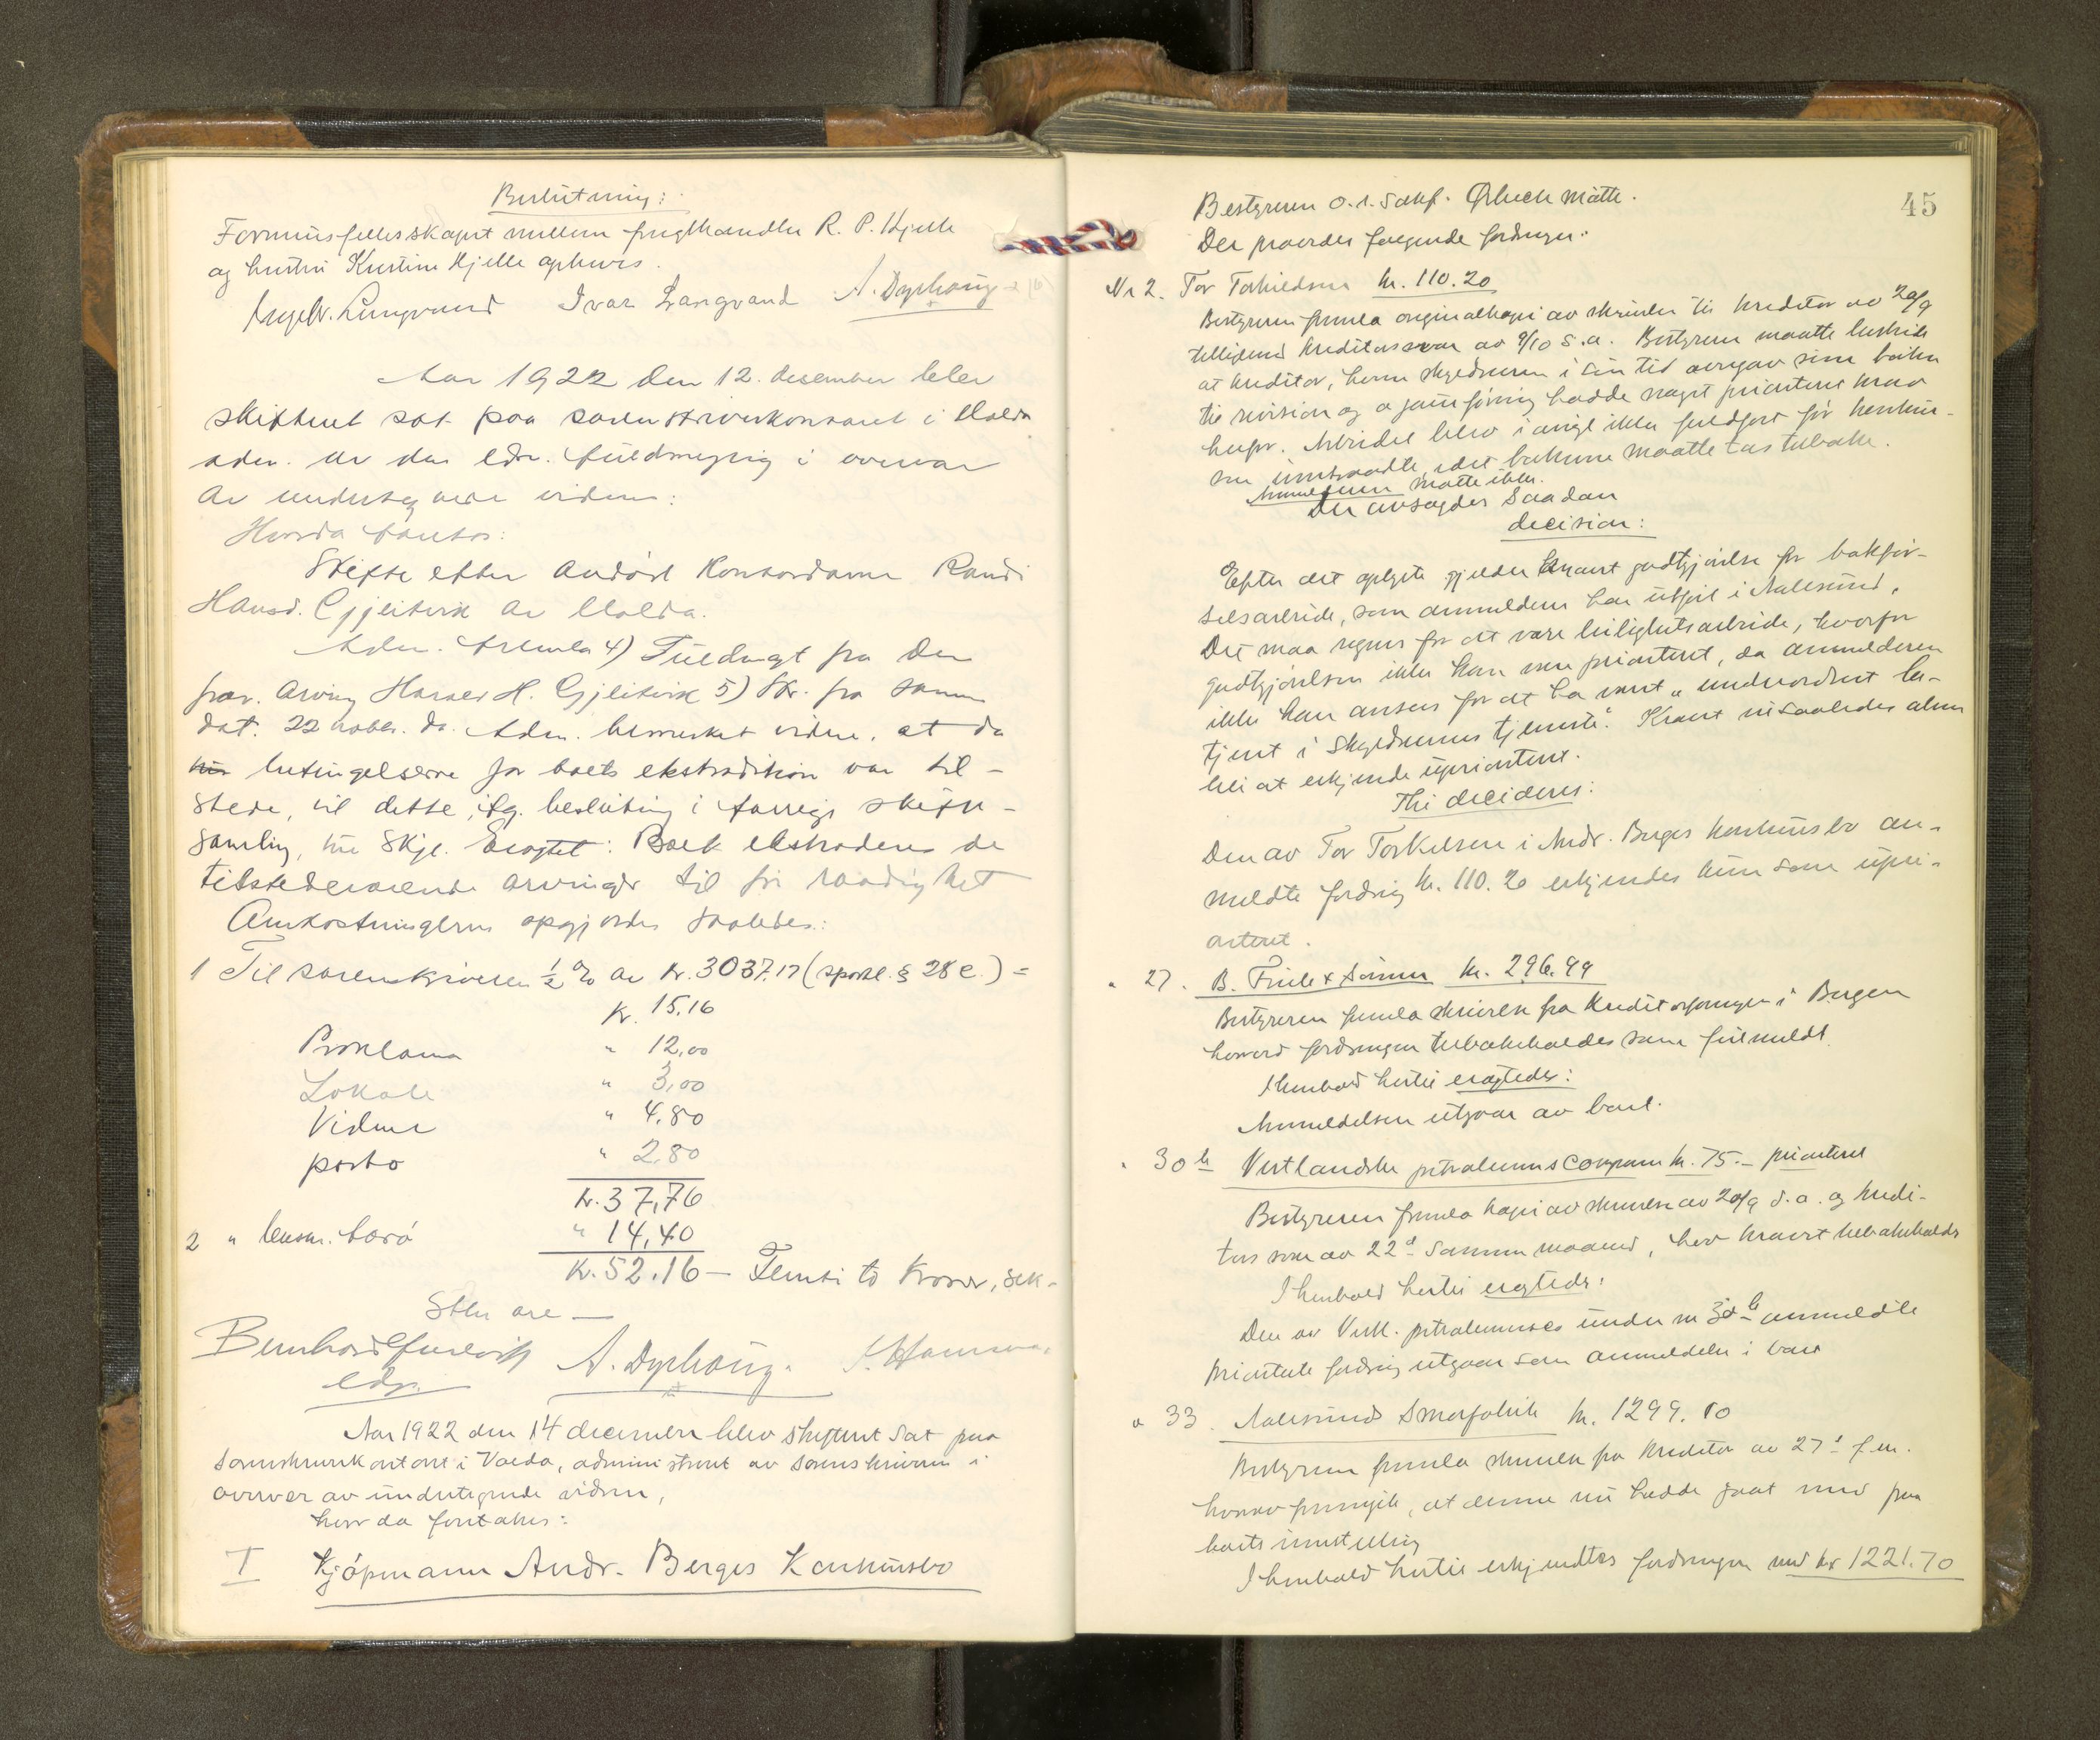 Beslutning:
Formuesfellesskapet mellem fragthandler R. P. Hjelle
og hustru Kristine Hjelle ophæves.
Ingebr. Langvand Ivar Langvand A. Dyrhaug
Aar 1922 den 12. desember blev
skifteret sat paa sorenskriverkontoret i Volda
adm. av den edsv. fuldmegtig i overvær
av undertegnede vidner:
Hvorda foretos:
Skifte efter avdød Kontordame Randi
Hansd. Gjeitvik av Volda.
Adm. fremla 4) Fuldmagt fra den
frav. arving Harald H. Gjeitvik 5) Skr. fra samme
dat. 22 novbr. da. Adm. bemerket videre, at da
betingelserne for boets ekstradition var til-
stede, vil dette, ifg. beslutning i forrige skifte-
samling, bli skje. Eragtet: Boet ekstraderes de
tilstedeværende arvinger til fri raadighet
Omkostningerne opgjordes saaledes:
1 Til sorenskriveren ½ % av kr. 3037.17 (sportl. § 28 c.) =
kr. 15,16
Proklama " 12,00
Lokale " 3,00
Vidner " 4,80
porto " 2,80
kr. 37,76
2 " lensm. " 14,40
kr. 52.16 – Femti to kroner, sek-
sten øre —
A. Dyrhaug.
edsv.
Aar 1922 den 14 december blev skifteret sat paa
sorenskriverkontoret i Volda, administrert av sorenskriveren i
overvær av undertegnede vidner,
hvor da foretokes:
I Kjøpmann Andr. Berges Konkursbo
45
Bestyreren o.r. sakf. Ørbech møtte.
Der prøvedes følgende fordringer:
Nr 2. Tor Torkildsen kr. 110.20
Bestyreren fremla originalkopi av skrivelse til kreditor av 20/9
tillikemed kreditors svar av 9/10 s.a. Bestyreren maatte bestride
at kreditor, hvem skyldneren i sin tid overgav sine bøker
til revision og ajourføring hadde noget prioritert krav
herfor. Arbeidet blev iøvrigt ikke fuldført før konkur-
sen indtraadte, idet bøkerne maatte tas tilbake.
Anmelderen møtte ikke.
Der avsagdes saadan
decision:
Efter det oplyste gjelder kravet godtgjørelse for bokfør-
selsarbeide, som anmelderen har utført i Aalesund.
Det maa regnes for at være leilighetsarbeide, hvorfor
godtgjørelsen ikke kan være prioritert, da anmelderen
ikke kan ansees for at ha vært "underordnet be-
tjent i skyldnerens tjeneste". Kravet vil saaledes alene
bli at erkjende uprioritert.
Thi decideres:
Den av Tor Torkilsen i Andr. Berges konkursbo an-
meldte fordring kr. 110.20 erkjendes kun som upri-
oritert.
" 27. B. Friele & Sønner kr. 296.99
Bestyreren fremla skrivelse fra Kreditorforeningen i Bergen
hvorved fordringen tilbakekaldes som feilmeldt.
I henhold hertil eragtedes:
Anmeldelsen utgaar av boet.
" 30 b Vestlandske petroleumscompani kr. 75.– prioritert
Bestyreren fremla kopi av skrivelse av 20/9 d.a. og kredi-
tors svar av 22d samme maaned, hvor kravet tilbakekaldes
I henhold hertil eragtedes:
Den av Vestl. petroleumsco under nr 30 b anmeldte
prioriterte fordring utgaar som anmeldelse i boet
" 33. Aalesunds Smørfabrik kr. 1299.10
Bestyreren fremla skrivelse fra kreditor av 27d f.m.
hvorav fremgik, at denne nu hadde gaat med paa
boets innstilling
I henhold hertil erkjendtes fordringen med kr 1221.70